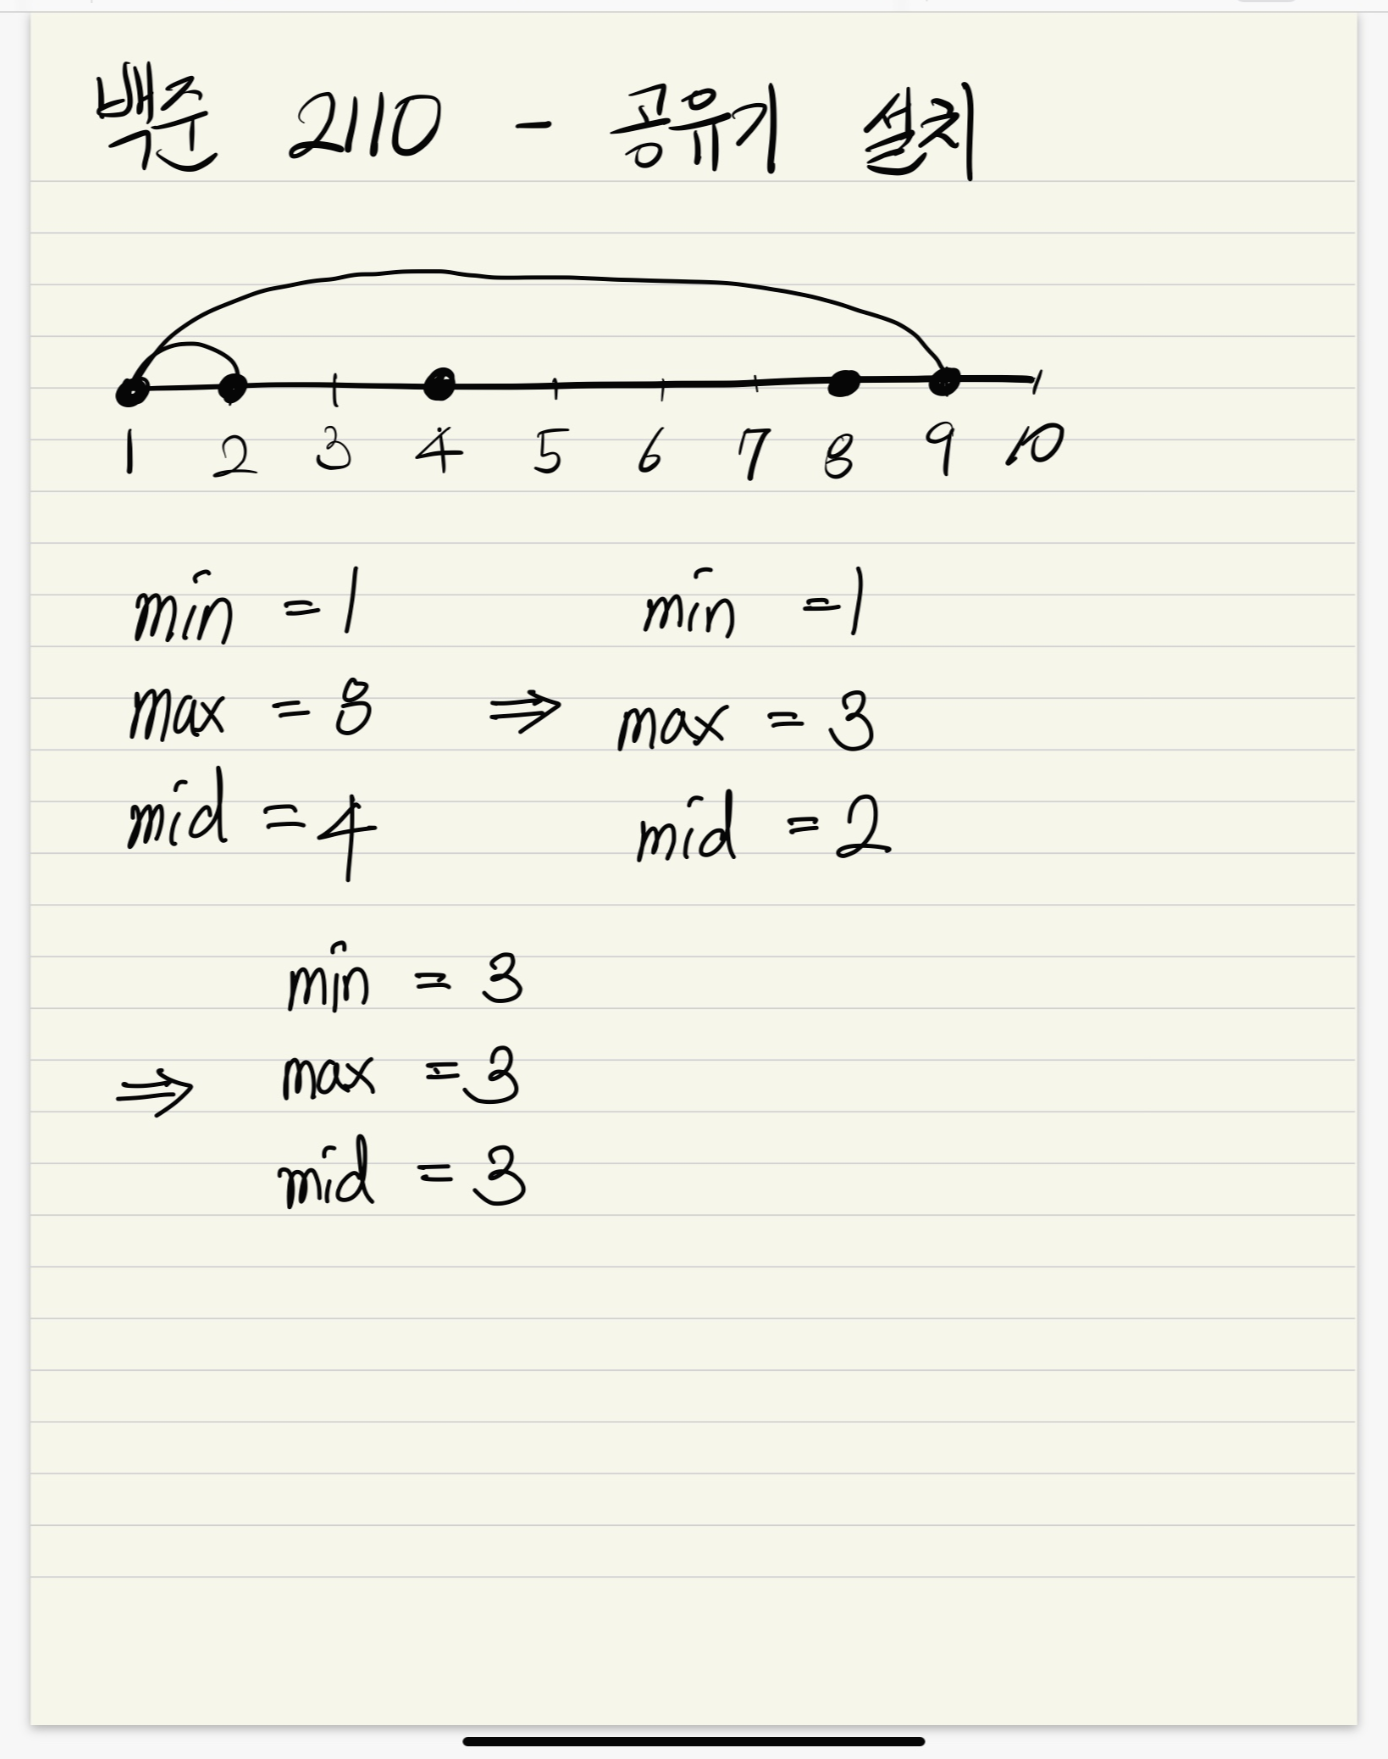 백준 2110 - 공유기 설치
1 2 3 4 5 6 7 8 9 10
min = 1 min = 1
max = 8 ⇒ max = 3
mid = 4 mid = 2
min = 3
⇒ max = 3
mid = 3